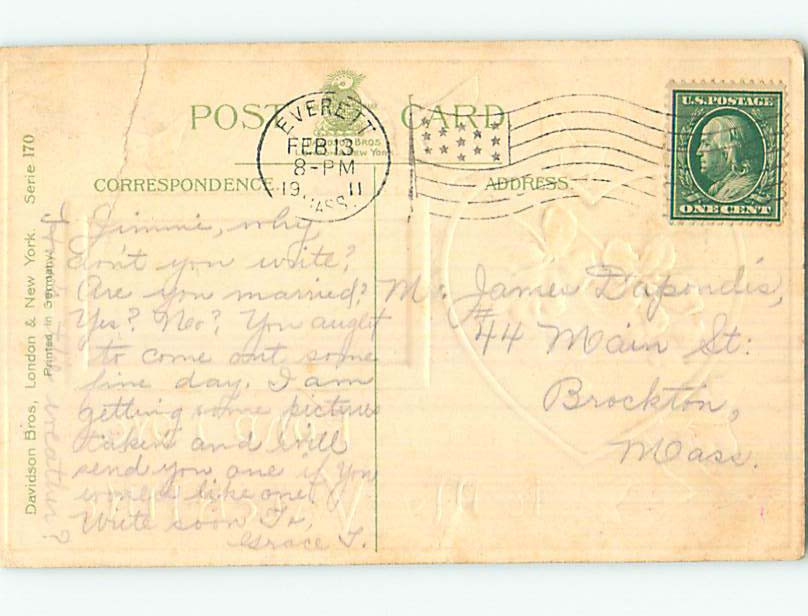 POST CARD
DAVIDSON BROS
LONDON & NEW YORK
EVERETT
FEB 13
8-PM
19 11
MASS.
U.S. POSTAGE
ONE CENT
CORRESPONDENCE
ADDRESS.
Jimmie, why
don't you write?
Are you married?
Yes? No? You aught
to come out some
fine day. I am
getting some pictures
taken and will
send you one if you
would like one.
Write soon To,
Grace T.
weather?
Mr. James Dapondis,
#44 Main St:
Brockton,
Mass.
Davidson Bros, London & New York. Serie 170
Printed in Germany